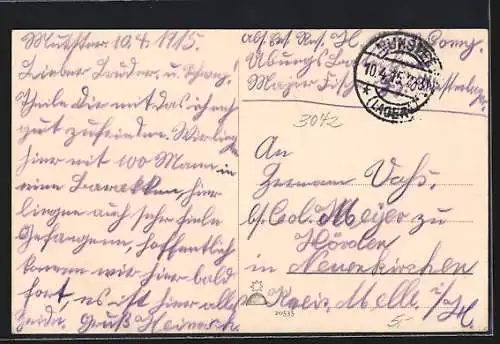 Munster 10.4.1915.
Lieber Bruder, u. Schwg!
Theile Dir mit das ich noch
gut zufrieden. Wir liegen
hier mit 100 Mann in
eine Baracken, hier
liegen auch sehr viele
Gefangenen, hoffentlich
kommen wir hier bald
fort, es ist hier alles
Heide. Gruß Heinrich
Abs. Res. H. Comp.
Übungs
MUNSTER
10.4.15
(LAGER)
3042
An
Hermann Voß.
b/Col. Meyer zu
Hörden
in Neuenkirchen
Kreis Melle i/H.
20535
5-